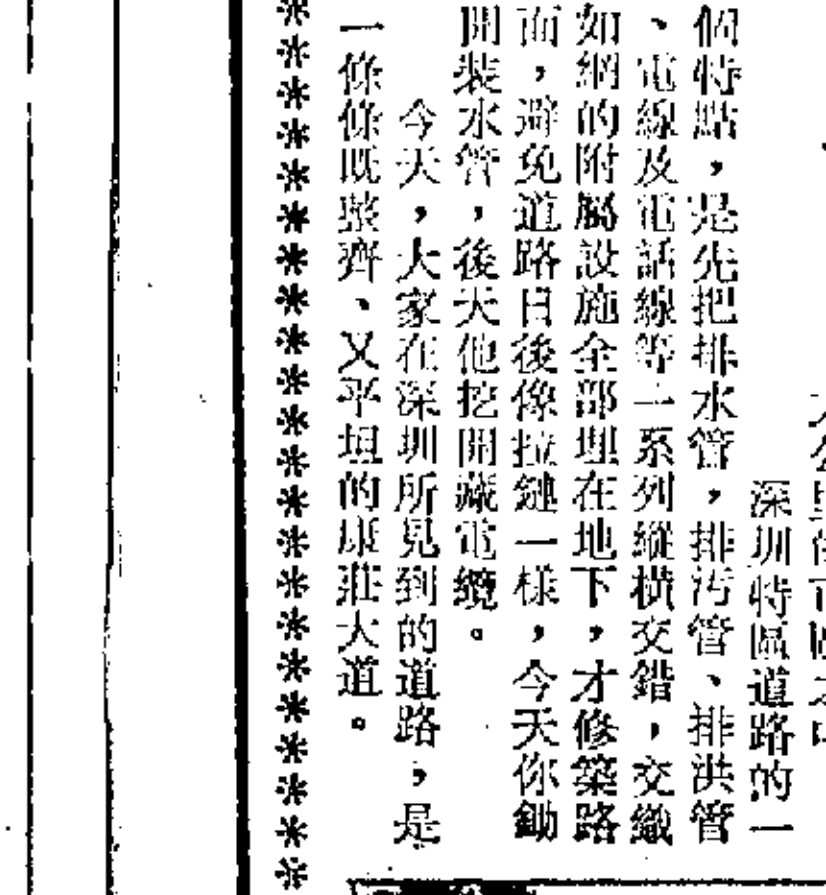 深圳特區道路的一
個特點，是先把排水管，排污管、排洪管
、電線及電話線等一系列縱橫交錯，交織
如網的附屬設施全部埋在地下，才修築路
面，避免道路日後像拉鏈一樣，今天你鋤
開裝水管，後天他挖開藏電纜。
今天，大家在深圳所見到的道路，是
一條條既整齊、又平坦的康莊大道。